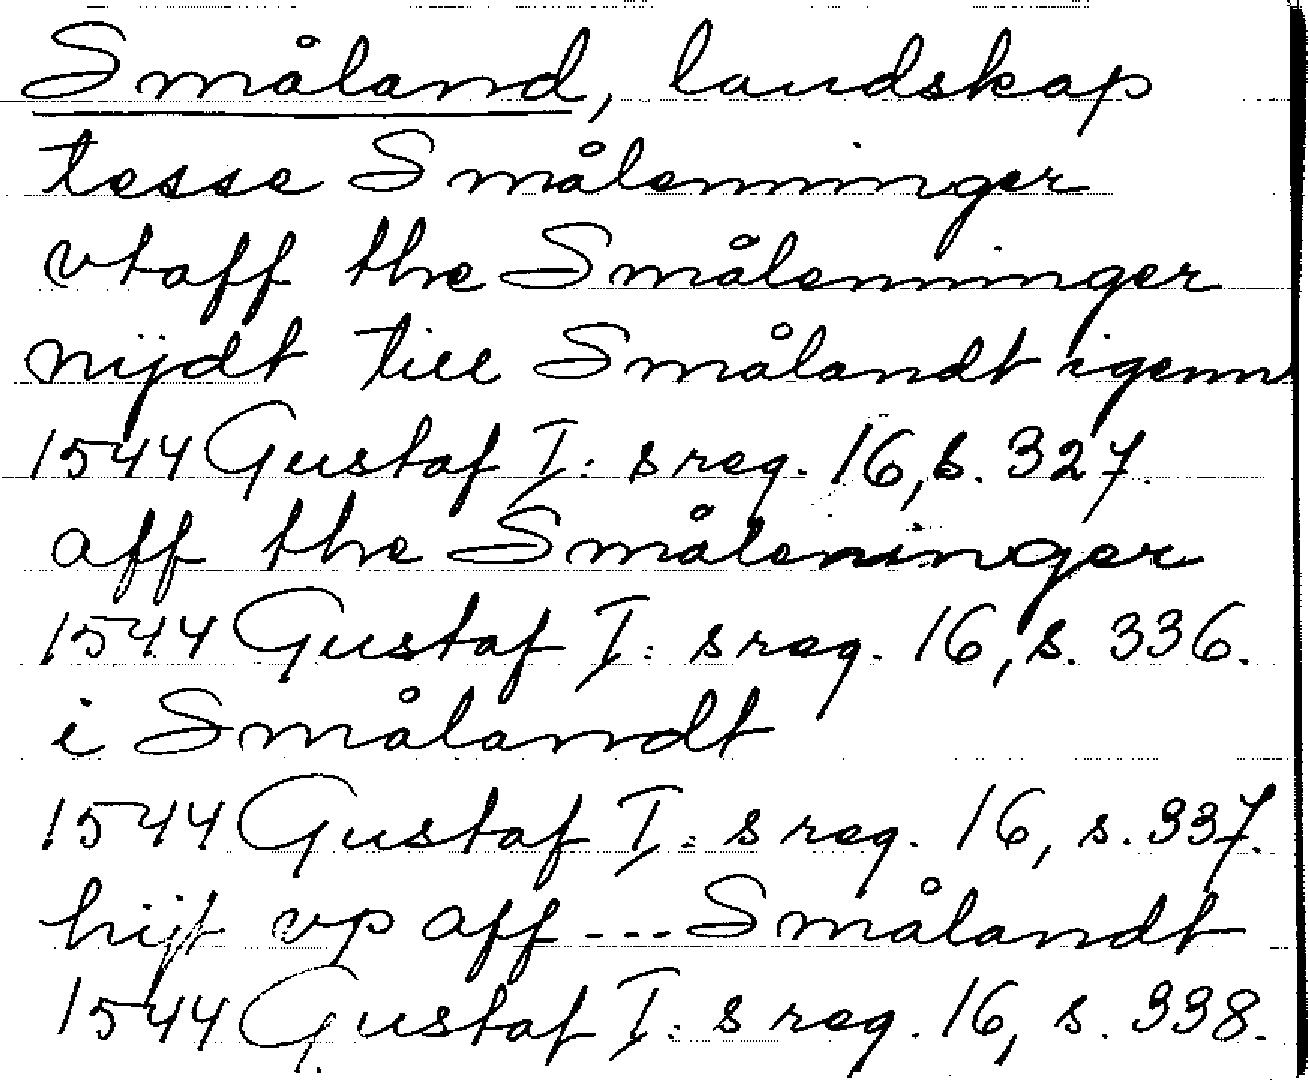 Småland, landskap
tesse Smålenninger
vtaff the Smålenninger
nijdt till Smålandt igenn
1544 Gustaf I: s reg. 16, s. 327.
aff the Småleninger
1544 Gustaf I: s reg. 16, s. 336.
i Smålandt
1544 Gustaf I: s reg. 16, s. 337.
hijt vp aff --- Smålandt
1544 Gustaf I: s reg. 16, s. 338.